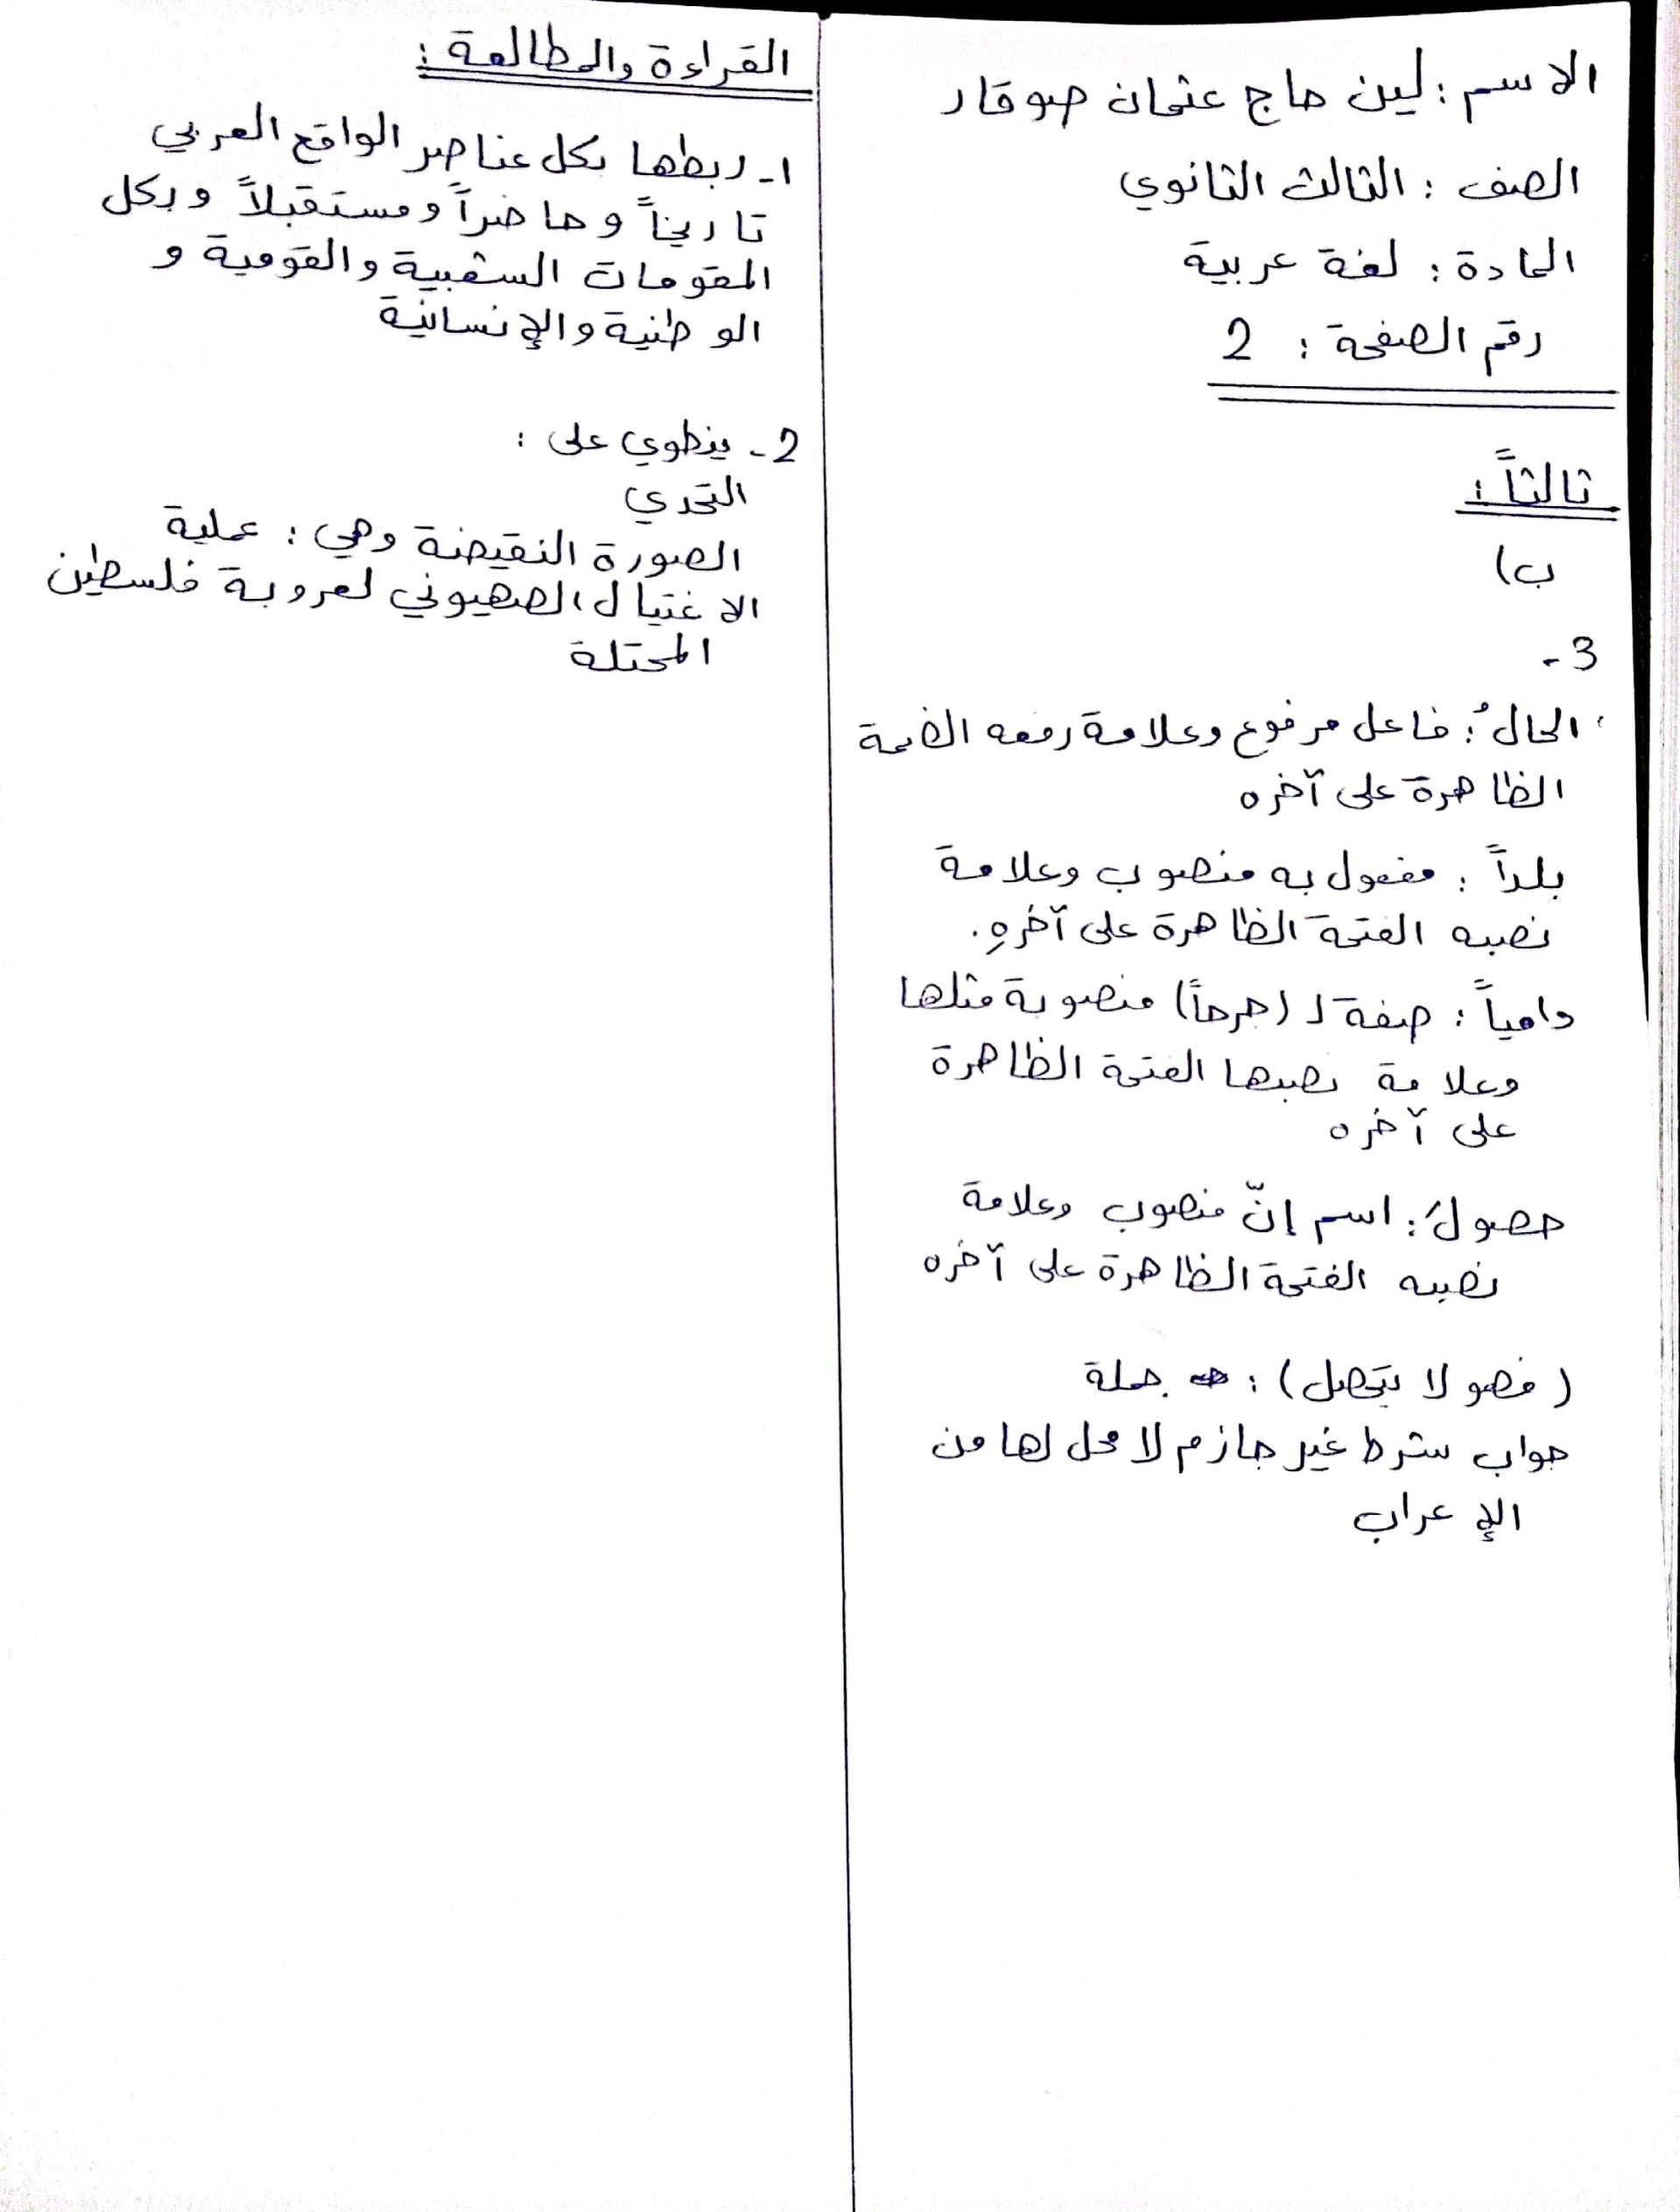 الاسم : لين حاج عثمان صوقار
الصف : الثالث الثانوي
المادة : لغة عربية
رقم الصفحة : 2
ثالثاً :
ب)
3 -
الحالُ : فاعل مرفوع وعلامة رفعه الضمة
الظاهرة على آخره
بلداً : مفعول به منصوب وعلامة
نصبه الفتحة الظاهرة على آخرهِ .
دامياً : صفة لـ (جرحاً) منصوبة مثلها
وعلامة نصبها الفتحة الظاهرة
على آخره
حصولَ : اسم إنّ منصوب وعلامة
نصبه الفتحة الظاهرة على آخره
(فصولا تتصل) : جملة
جواب شرط غير جازم لا محل لها من
الإعراب
القراءة والمطالعة :
1- ربطها بكل عناصر الواقع العربي
تاريخاً وحاضراً ومستقبلاً وبكل
المقومات الشعبية والقومية و
الوطنية والإنسانية
2- ينطوي على :
التحدي
الصورة النقيضة وهي : عملية
الاغتيال الصهيوني لعروبة فلسطين
المحتلة